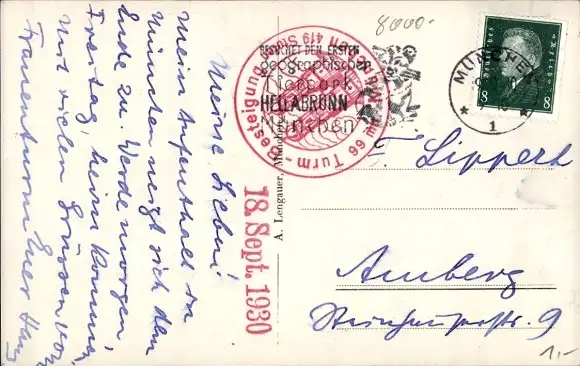 Meine Lieben!
Mein Aufenthalt in
München neigt sich dem
Ende zu. Werde morgen
Freitag, heim kommen.
Mit vielen Grüssen vom
Frauenturm Euer Hans
18. Sept. 1930
A. Lengauer, München
Turm-Besteigung
99 mtr.
419 Stufen
BESUCHET DEN ERSTEN
geographischen
Tierpark
HELLABRUNN
München
8000.-
MÜNCHEN
1
8 8
F. Lippert
Amberg
9
1,-